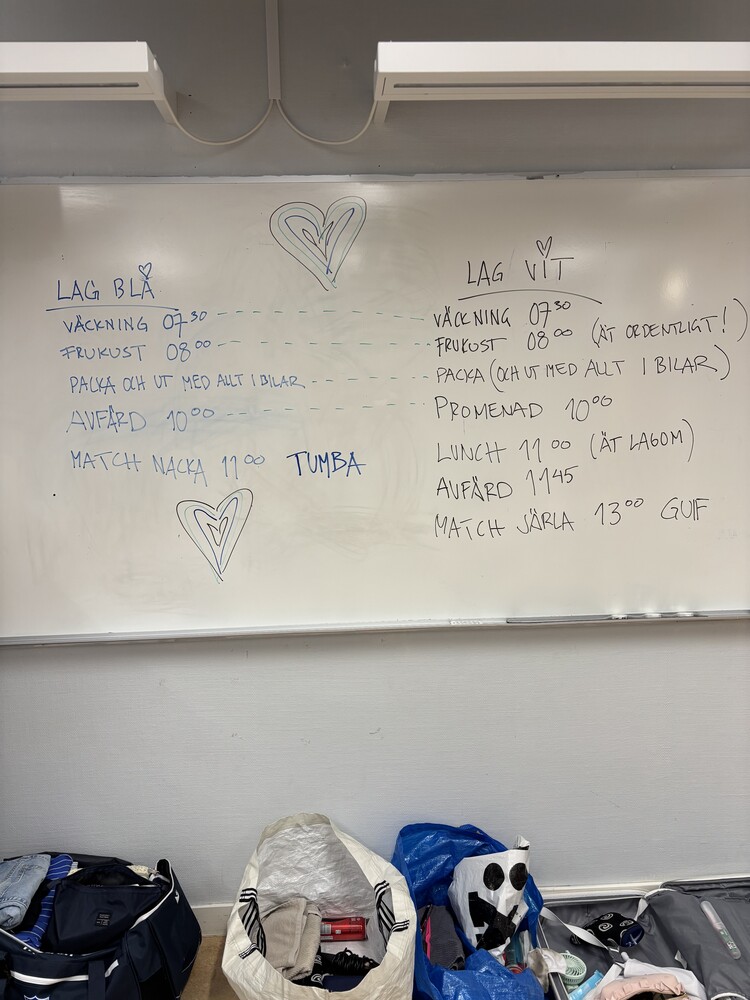 LAG BLÅ
VÄCKNING 07³⁰
FRUKUST 08⁰⁰
PACKA OCH UT MED ALLT I BILAR
AVFÄRD 10⁰⁰
MATCH NACKA 11⁰⁰ TUMBA
LAG VIT
VÄCKNING 07³⁰
FRUKUST 08⁰⁰ (ÄT ORDENTLIGT!)
PACKA (OCH UT MED ALLT I BILAR)
PROMENAD 10⁰⁰
LUNCH 11⁰⁰ (ÄT LAGOM)
AVFÄRD 11⁴⁵
MATCH JÄRLA 13⁰⁰ GUIF